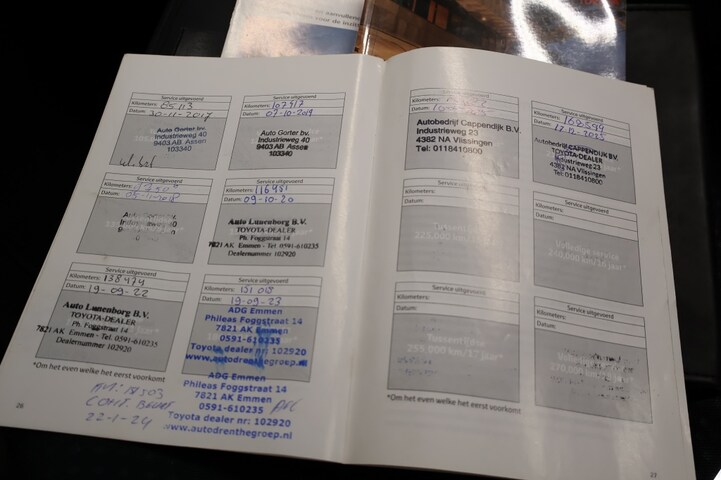 Service uitgevoerd
Kilometers: 85113
Datum: 30-11-2017
Auto Gorter bv.
Industrieweg 40
9403 AB Assen
103340
Service uitgevoerd
Kilometers: 107917
Datum: 07-10-2019
Auto Gorter bv.
Industrieweg 40
9403 AB Assen
103340
Service uitgevoerd
Kilometers:
Datum:
Auto Gorter bv.
Industrieweg 40
Service uitgevoerd
Kilometers: 116981
Datum: 09-10-20
Auto Lunenborg B.V.
TOYOTA-DEALER
Ph. Foggstraat 14
7821 AK Emmen - Tel. 0591-610235
Dealernummer 102920
Service uitgevoerd
Kilometers: 138474
Datum: 19-09-22
Auto Lunenborg B.V.
TOYOTA-DEALER
Ph. Foggstraat 14
7821 AK Emmen - Tel. 0591-610235
Dealernummer 102920
Service uitgevoerd
Kilometers: 151 018
Datum: 19-09-23
ADG Emmen
Phileas Foggstraat 14
7821 AK Emmen
0591-610235
Toyota dealer nr: 102920
www.autodrenthegroep.nl
ADG Emmen
Phileas Foggstraat 14
7821 AK Emmen
0591-610235
Toyota dealer nr: 102920
www.autodrenthegroep.nl
*Om het even welke het eerst voorkomt
22-1-24
26
Service uitgevoerd
Kilometers:
Datum:
Autobedrijf Cappendijk B.V.
Industrieweg 23
4382 NA Vlissingen
Tel: 0118410800
Service uitgevoerd
Kilometers: 168599
Datum: 12-12-2025
Autobedrijf CAPPENDIJK BV.
TOYOTA-DEALER
Industrieweg 23
4382 NA Vlissingen
Tel: 0118410800
Service uitgevoerd
Kilometers:
Datum:
225.000 km/15 jaar*
Service uitgevoerd
Kilometers:
Datum:
Volledige service
240.000 km/16 jaar*
Service uitgevoerd
Kilometers:
Datum:
255.000 km/17 jaar*
Service uitgevoerd
Kilometers:
Datum:
*Om het even welke het eerst voorkomt
27